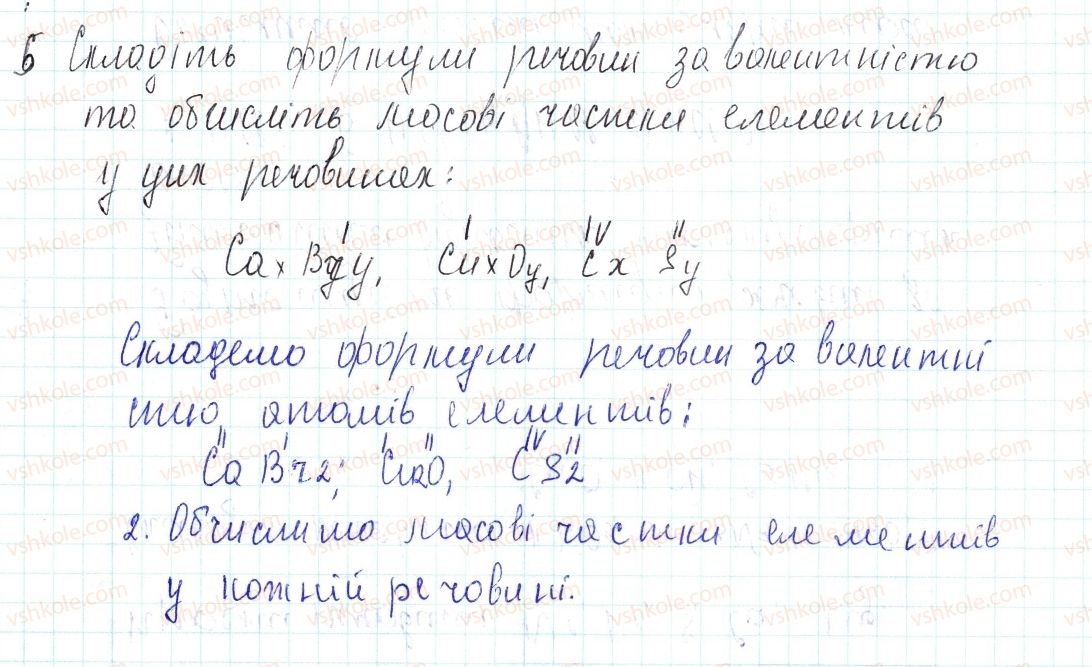 5 Складіть формули речовин за валентністю
та обчисліть масові частки елементів
у цих речовинах:
I I IV II
CaxBryy, CuxOy, Cx Sy
Складемо формули речовин за валентні
стю атомів елементів:
II I I II IV II
CaBr2; Cu2O, CS2
2. Обчислимо масові частки елементів
у кожній речовині.